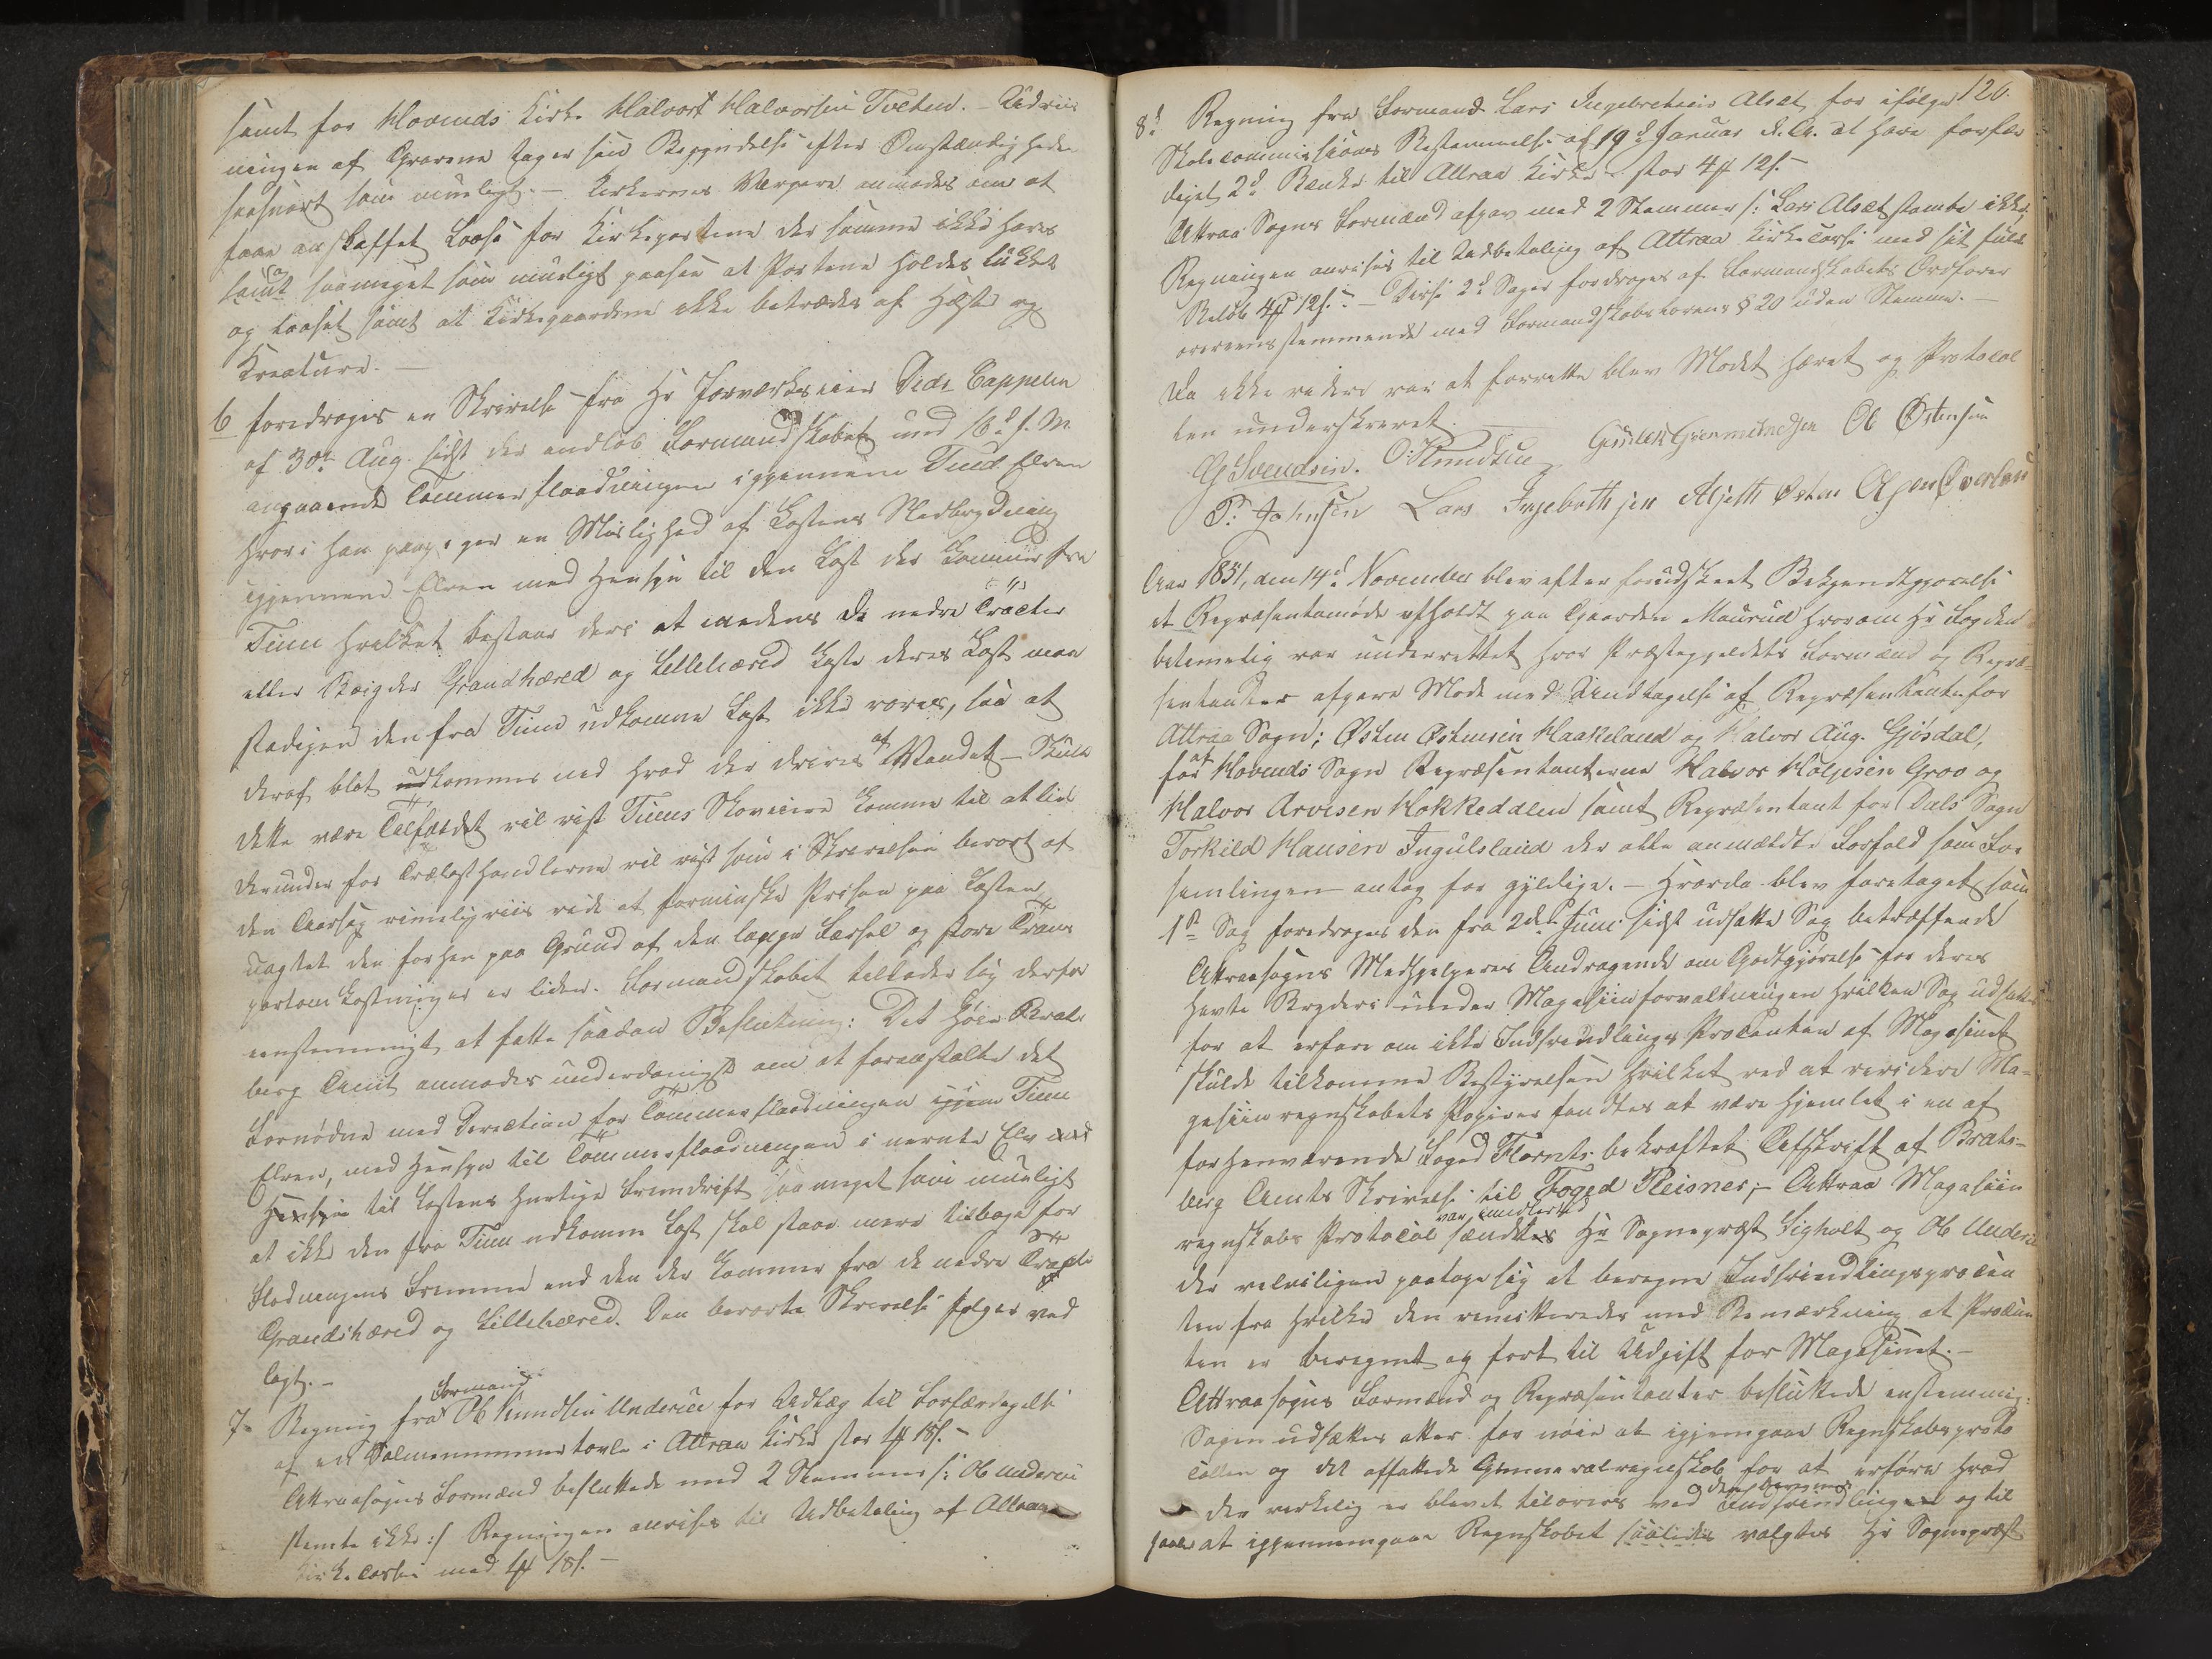 samt for Hovinds Kirke Halvort Halvorsen Tveten. – Udvii
ningen af Gravene tager sin Begyndelse efter Omstændigheden
saasnart som mueligt. – Kirkernes Værgere anmodes om at
faae anskaffet Laase for Kirkeportene der samme ikke haves
samt saameget som mueligt paasee at Portene holdes lukket
og laaset samt at Kirkegaardene ikke betrædes af Heste og
Kreature. –
6 foredroges en Skrivelse fra Hr Jernværkseier Didr. Cappelen
af 30te Aug. sidst der indløb Formandskabet med 16d f. M.
angaaende Tømmerflaadningen igjennem Tind Elven
hvori han paapeger en Mislighed af Lastens Nedbrydning
igjennem Elven med Hensyn til den Last der kommer fra
Tinn hvilket bestaar deri at medens de nedre Tracter
eller Bøigder Grandshæred og Lilleheered Laste deres Last maa
stadigen den fra Tinn udkomne Last ikke røres, saa at
deraf blot udkommer ned hvad der drives af Vandet – Skulle
dette være Tilfældet vil vist Tinns Skoveiere komme til at lide
derunder for Trælasthandlerne vil vist som i Skrivelsen berørt af
den Aarsag rimeligviis vide at forminske Prisen paa Lasten
uagtet den forhen paa Grund af den lange Færsel og store Trans
portomkostninger er liden. Formandskabet tillader sig derfor
eenstemmigt at fatte saadan Beslutning: Det høie Brats
berg Amt anmodes underdanigst om at foranstalte det
Fornødne med Direction for Tømmerflaadningen igjem Tinn
Elven, med Hensyn til Tømmerflaadningen i nævnte Elv med
Hensyn til Lastens hurtige Fremdrift saa meget som mueligt
at ikke den fra Tinn udkomne Last skal staae mere tilbage for
Flodningens Fremme end den der kommer fra de nedre Tracte
Grandshæred og Lilleheered. Den berørte Skrivelse følger ved
lagt. –
7– Regning fra Formand Ob Knudsen Underi for Udlæg til Forfærdigelse
af en Salmenummertavle i Attraa Kirke stor 4# 18s. –
Attraasogns Formænd besluttede med 2 Stemmer /: Ob Underi
stemte ikke :/ Regningen anvises til Udbetaling af Attraa
Kirkecasse med 4# 18s. –
126.
8d Regning fra Formand Lars Ingebretsen Alsæt for ifølge
Skolecommissionens Bestemmelse af 19d Januar d. A. at have forfær
diget 2d Bænke til Attraa Kirke – stor 4# 12s. –
Attraa Sogns Formænd afgav med 2 Stemmer /: Lars Alsæt stemte ikke
Regningen anvises til Udbetaling af Attraa Kirkecasse med sit fulde
Beløb 4# 12s. – Disse 2d Sager fordroges af Formandskabets Ordfører
overeensstemmende med Formandskabslovens § 20 uden Stemme.
Da ikke videre var at forrette blev Mødet hævet og Protocol
len underskrevet.
G Svendsen. O: Knudsen Gunder Gunmundsen Ob Østensen
P. Johnsen Lars Ingebrethsen Alseth Østen Olsen Øverland
Aar 1851, den 14d November blev efter forudskeet Bekjendtgjørelse
et Repræsentamøde afholdt paa Gaarden Maurud hvorom Hr Fogden
betimelig var underrettet hvor Præstegjeldets Formænd og Repræ-
sentanter afgave Møde med Undtagelse af Repræsentante for
Attraa Sogn; Østen Østensen Haakeland og Halvor Aug. Gjøsdal,
for Hovinds Sogn Repræsentanterne Halvor Holjesen Groo og
Halvor Arvesen Hokkedalen samt Repræsentant for Dals Sogn
Torkild Hansen Ingulsland der alle anmældte Forfald som For
samlingen antog for gyldige. – Hvorda blev foretaget som
1d– Sag foredroges den fra 2den Juni sidst udsatte Sag betræffende
Attraasogns Medhjelperes Andragende om Godtgjørelse for deres
havte Bryderi under Magasiinforvaltningen hvilken Sag udsattes
for at erfare om ikke Indsvindlings Procenten af Magasinet
skulde tilkomme Bestyrelsen hvilket ved at revidere Ma-
gasiinregnskabets Papirer fandtes at være hjemlet i en af
forhenværende Foged Florents bekræftet Afskrift af Brats-
berg Amts Skrivelse til Foged Pleisner; – Attraa Magasiin
regnskabs Protocol var imidlertid sændtes Hr Sognepræst Sigholt og Ob Underi
der velvilligen paatoge sig at beregne Indsvindlingsprocen
ten fra hvilke den remitteredes med Bemærkning at Procen
ten er beregnet og ført til Udgift for Magasinet. –
Attraasogns Formænd og Repræsentanter besluttede enstemmig:
Sagen udsættes atter for nøie at igjemgaae Regnskabsproto
collen og det affattede Generalregnskab for at erfare hvad
der verkelig er blevet tilovers ved den beregnede Indsvindlingen og til
saale at igjennemgaae Regnskabet saaledes valgtes Hr Sognepræst